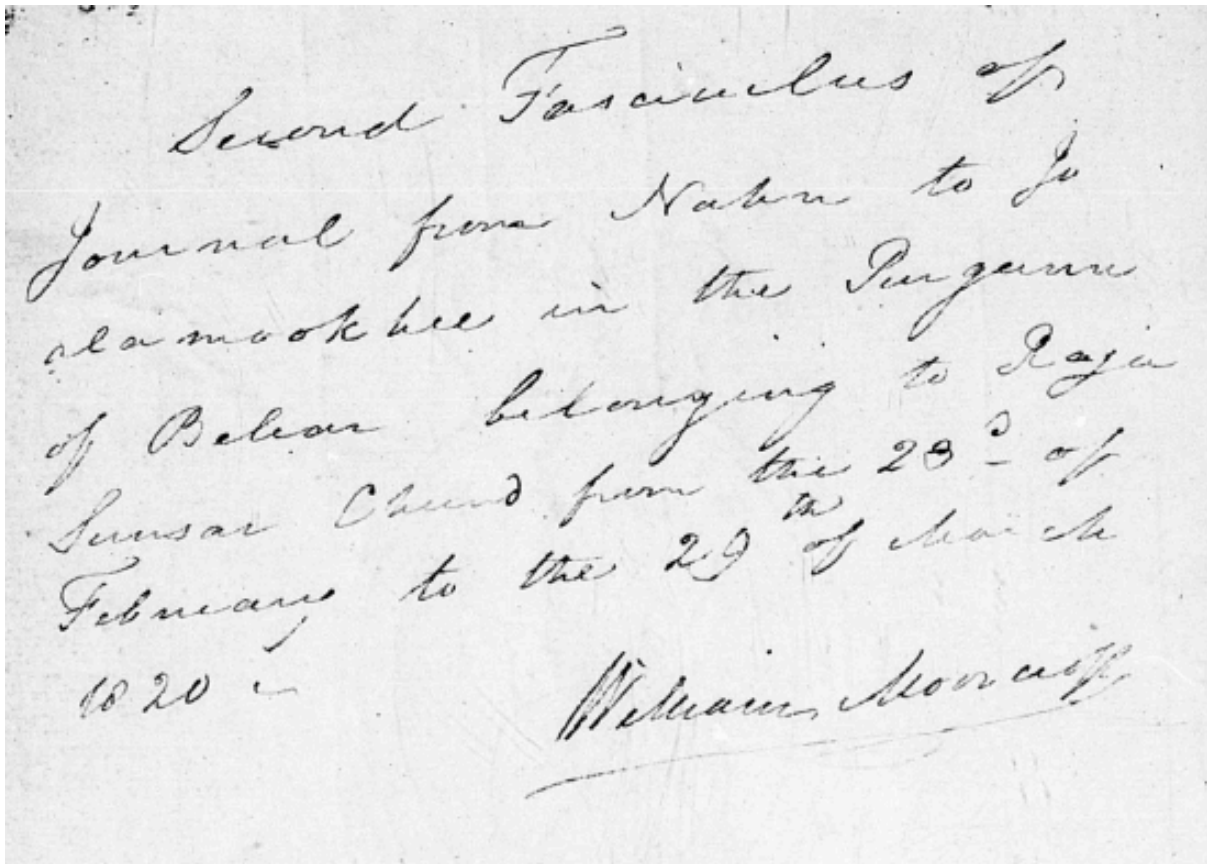 Second Fasciculus of
Journal from Nahn to Ju
alamookhee in the Purgunna
of Belour belonging to Raja
Sunsar Chund from the 23d of
February to the 29th of March
1820
William Moorcroft